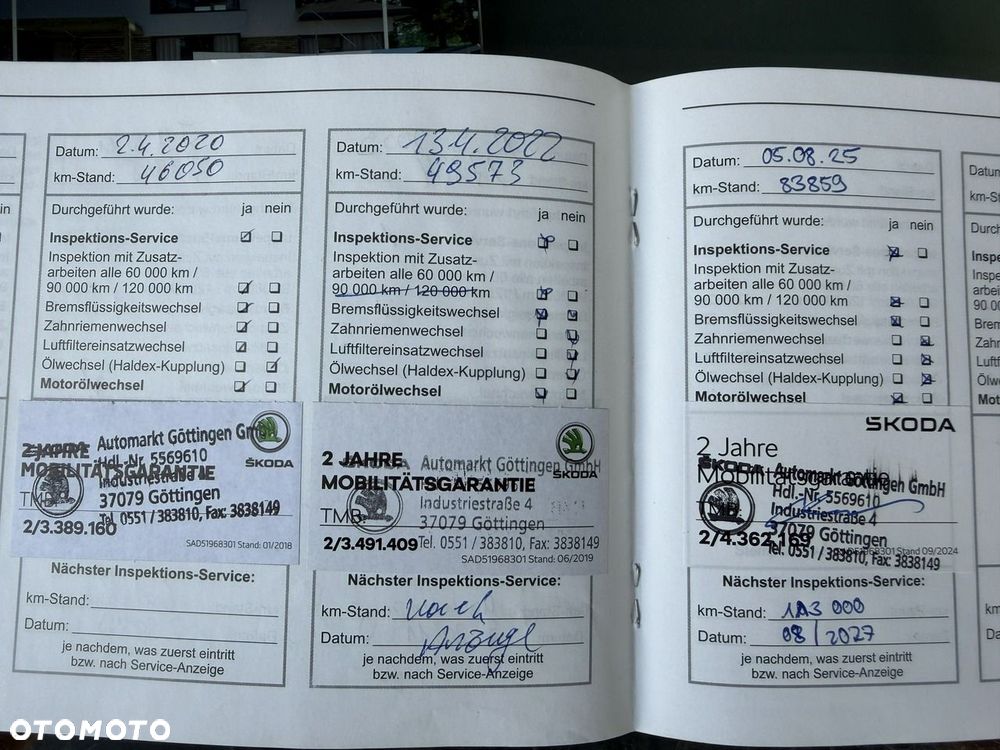 Datum: 2.4.2020
km-Stand: 46050
Durchgeführt wurde: ja nein
Inspektions-Service
Inspektion mit Zusatz-
arbeiten alle 60 000 km /
90 000 km / 120 000 km
Bremsflüssigkeitswechsel
Zahnriemenwechsel
Luftfiltereinsatzwechsel
Ölwechsel (Haldex-Kupplung)
Motorölwechsel
2 JAHRE
MOBILITÄTSGARANTIE
TMB
2/3.389.160
Automarkt Göttingen GmbH
Hdl.-Nr. 5569610
Industriestraße 4
37079 Göttingen
Tel. 0551 / 383810, Fax: 3838149
ŠKODA
SAD51968301 Stand: 01/2018
Nächster Inspektions-Service:
km-Stand:
Datum:
je nachdem, was zuerst eintritt
bzw. nach Service-Anzeige
Datum: 13.4.2022
km-Stand: 49573
Durchgeführt wurde: ja nein
Inspektions-Service
Inspektion mit Zusatz-
arbeiten alle 60 000 km /
90 000 km / 120 000 km
Bremsflüssigkeitswechsel
Zahnriemenwechsel
Luftfiltereinsatzwechsel
Ölwechsel (Haldex-Kupplung)
Motorölwechsel
2 JAHRE
MOBILITÄTSGARANTIE
TMB
2/3.491.409
ŠKODA
Automarkt Göttingen GmbH
Industriestraße 4
37079 Göttingen
Tel. 0551 / 383810, Fax: 3838149
ŠKODA
SAD51968301 Stand: 06/2019
Nächster Inspektions-Service:
km-Stand: nach
Datum:
je nachdem, was zuerst eintritt
bzw. nach Service-Anzeige
Datum: 05.08.25
km-Stand: 83859
Durchgeführt wurde: ja nein
Inspektions-Service
Inspektion mit Zusatz-
arbeiten alle 60 000 km /
90 000 km / 120 000 km
Bremsflüssigkeitswechsel
Zahnriemenwechsel
Luftfiltereinsatzwechsel
Ölwechsel (Haldex-Kupplung)
Motorölwechsel
ŠKODA
2 Jahre
Mobilitätsgarantie
TMB
2/4.362.169
ŠKODA
Automarkt Göttingen GmbH
Hdl.-Nr. 5569610
Industriestraße 4
37079 Göttingen
Tel. 0551 / 383810, Fax: 3838149
SAD51968301 Stand 09/2024
Nächster Inspektions-Service:
km-Stand: 113 000
Datum: 08/2027
je nachdem, was zuerst eintritt
bzw. nach Service-Anzeige
OTOMOTO